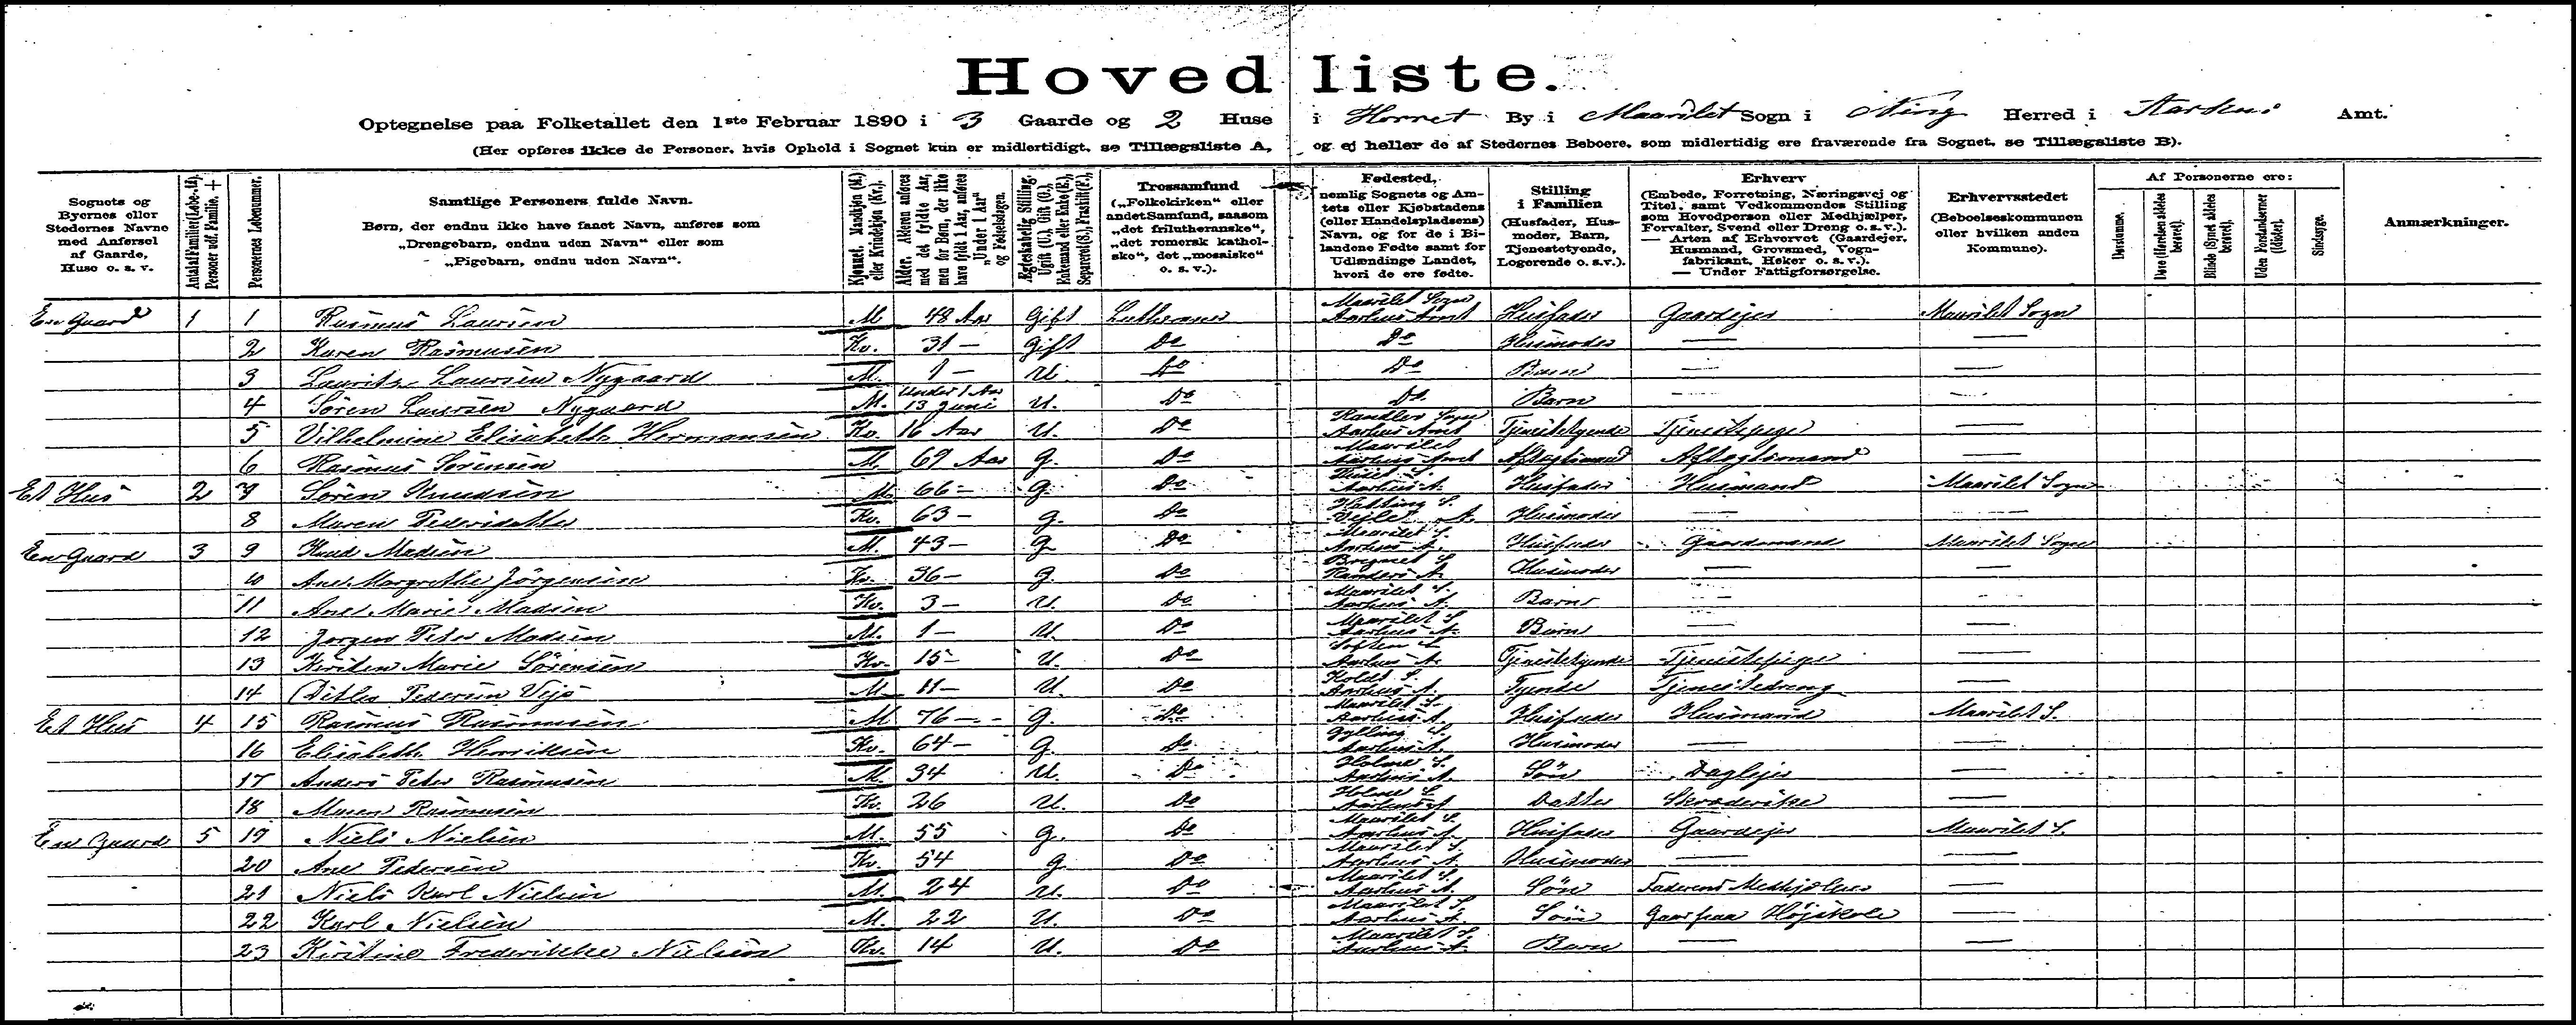 Hovedliste.
Optegnelse paa Folketallet den 1ste Februar 1890 i 3 Gaarde og 2 Huse i Horret By i Maarslet Sogn i Ning Herred i Aarhus Amt.
(Her opføres ikke de Personer, hvis Ophold i Sognet kun er midlertidigt, se Tillægsliste A, og ej heller de af Stedernes Beboere, som midlertidig ere fraværende fra Sognet, se Tillægsliste B).
Sognets og Byernes eller Stedernes Navne med Anførsel af Gaarde, Huse o. s. v.
Antal af Familier (Løbe-Id). Personer udf. Familie. +
Personernes Løbenummer.
Samtlige Personers fulde Navn.
Børn, der endnu ikke have faaet Navn, anføres som „Drengebarn, endnu uden Navn“ eller som „Pigebarn, endnu uden Navn“.
Kjønnet. Mandkjøn (M.) eller Kvindekjøn (Kv.).
Alder. Alderen anføres med det fyldte Aar, men for Børn, der ikke have fyldt 1 Aar, anføres „Under 1 Aar“ og Fødselsdagen.
Ægteskabelig Stilling. Ugift (U.), Gift (G.), Enkemand eller Enke (E.), Separeret (S.), Fraskilt (F.).
Trossamfund („Folkekirken“ eller andet Samfund, saasom „det frilutheranske“, „det romersk katholske“, det „mosaiske“ o. s. v.).
Fødested, nemlig Sognets og Amtets eller Kjøbstadens (eller Handelspladsens) Navn, og for de i Bilandene Fødte samt for Udlændinge Landet, hvori de ere fødte.
Stilling i Familien (Husfader, Husmoder, Barn, Tjenestetyende, Logerende o. s. v.).
Erhverv (Embede, Forretning, Næringsvej og Titel, samt Vedkommendes Stilling som Hovedperson eller Medhjælper, Forvalter, Svend eller Dreng o. s. v.). — Arten af Erhvervet (Gaardejer, Husmand, Grovsmed, Vognfabrikant, Høker o. s. v.). — Under Fattigforsørgelse.
Erhvervsstedet (Beboelseskommunen eller hvilken anden Kommune).
Af Personerne ere:
Døvstumme.
Døve (Hørelsen aldeles berøvet).
Blinde (Synet aldeles berøvet).
Uden Forstandsevner (Idioter).
Sindssyge.
Anmærkninger.
En Gaard 1 1 Rasmus Laursen M. 42 Aar Gift Lutheraner Maarslet Sogn Aarhus Amt Husfader Gaardejer Maarslet Sogn
2 Karen Rasmusen Kv. 31 — Gift Do Do Husmoder — —
3 Lauritz Laursen Nygaard M. 1 — U. Do Do Barn — —
4 Sören Laursen Nygaard M. Under 1 Aar 13 Juni U. Do Do Barn — —
5 Vilhelmine Elisabeth Hermansen Kv. 16 Aar U. Do Sogn Aarhus Amt Tjenestetyende Tjenestepige —
6 Rasmus Sörensen M. 69 Aar G. Do Maarslet Aarhus Amt Aftægtsmand Aftægtsmand —
Et Hus 2 7 Sören Knudsen M. 66 — G. Do S. Aarhus A. Husfader Husmand Maarslet Sogn
8 Maren Pedersdatter Kv. 63 — G. Do Hatting S. Vejle A. Husmoder — —
En Gaard 3 9 Knud Madsen M. 43 — G. Do Maarslet S. Aarhus A. Husfader Gaardmand Maarslet Sogn
10 Ane Margrethe Jörgensen Kv. 36 — G. Do S. Randers A. Husmoder — —
11 Ane Marie Madsen Kv. 3 — U. Do Maarslet S. Aarhus A. Barn — —
12 Jorgen Peter Madsen M. 1 — U. Do Maarslet S. Aarhus A. Barn — —
13 Kirsten Marie Sörensen Kv. 15 — U. Do Aarhus A. Tjenestetyende Tjenestepige —
14 Ditlev Pedersen Vejs M. 11 — U. Do Kolds S. Aarhus A. Tyende Tjenestedreng —
Et Hus 4 15 Rasmus Rasmusen M. 76 — G. Do Maarslet S. Aarhus A. Husfader Husmand Maarslet S.
16 Elisabeth Henriksen Kv. 64 — G. Do Gylling S. Aarhus A. Husmoder — —
17 Anders Peter Rasmusen M. 34 U. Do Holme S. Aarhus A. Sön Daglejer —
18 Maren Rasmusen Kv. 26 U. Do Holme S. Aarhus A. Datter Skræderske —
En Gaard 5 19 Niels Nielsen M. 55 G. Do Maarslet S. Aarhus A. Husfader Gaardejer Maarslet S.
20 Ane Pedersen Kv. 54 G. Do Maarslet S. Aarhus A. Husmoder — —
21 Niels Karl Nielsen M. 24 U. Do Maarslet S. Aarhus A. Sön Faderens Medhjælper —
22 Karl Nielsen M. 22 U. Do Maarslet S. Aarhus A. Sön Gaar paa Højskole —
23 Kirstine Frederikke Nielsen Kv. 14 U. Do Maarslet S. Aarhus A. Barn — —